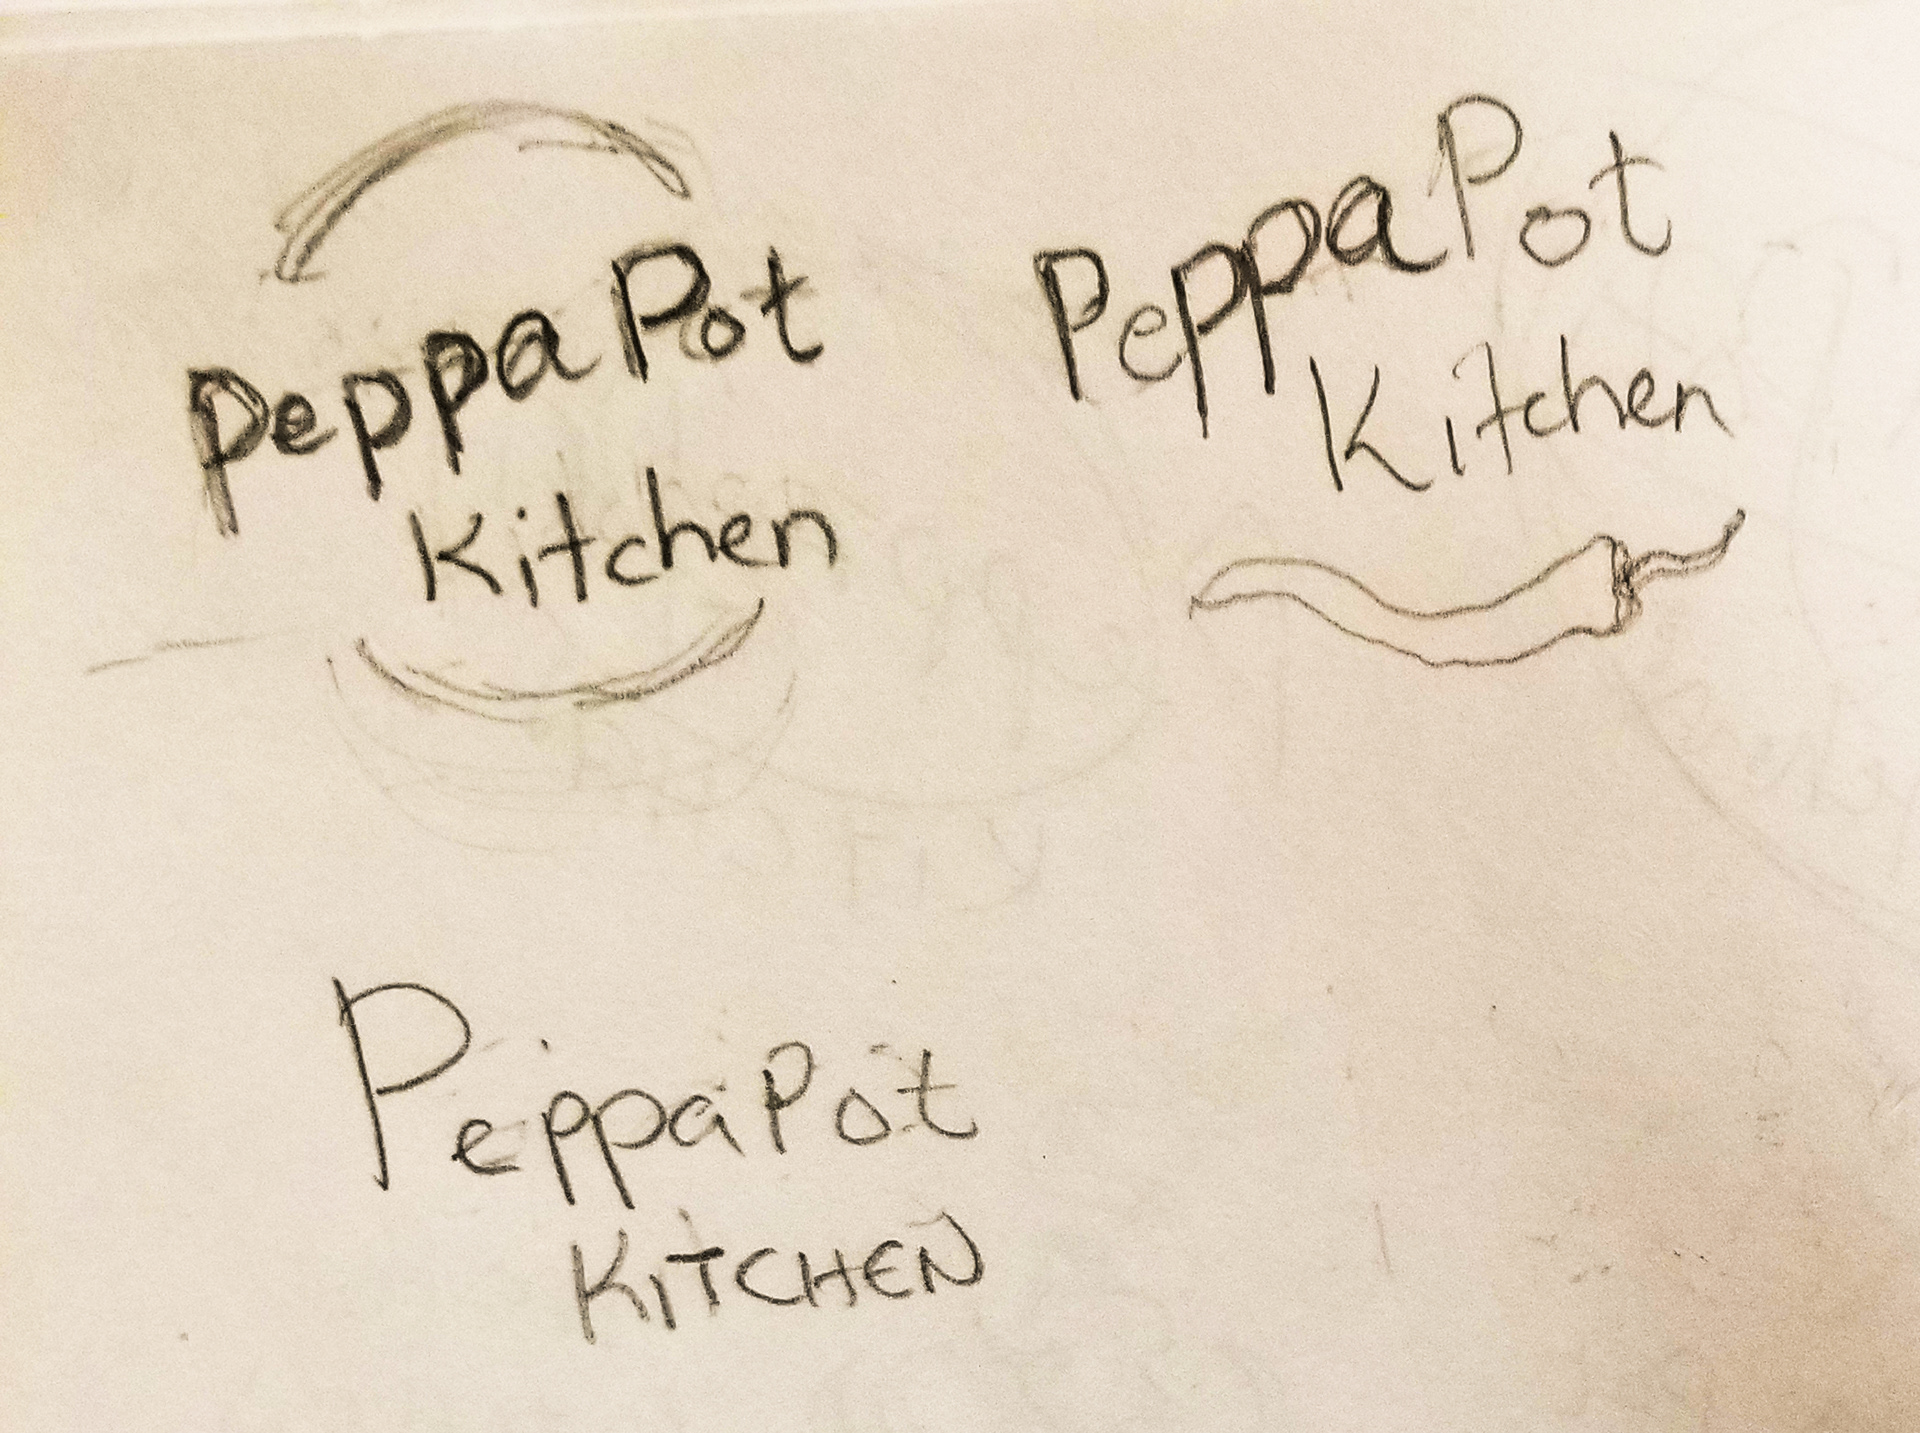 Peppa Pot
Kitchen
PeppaPot
Kitchen
PeppaPot
KITCHEN